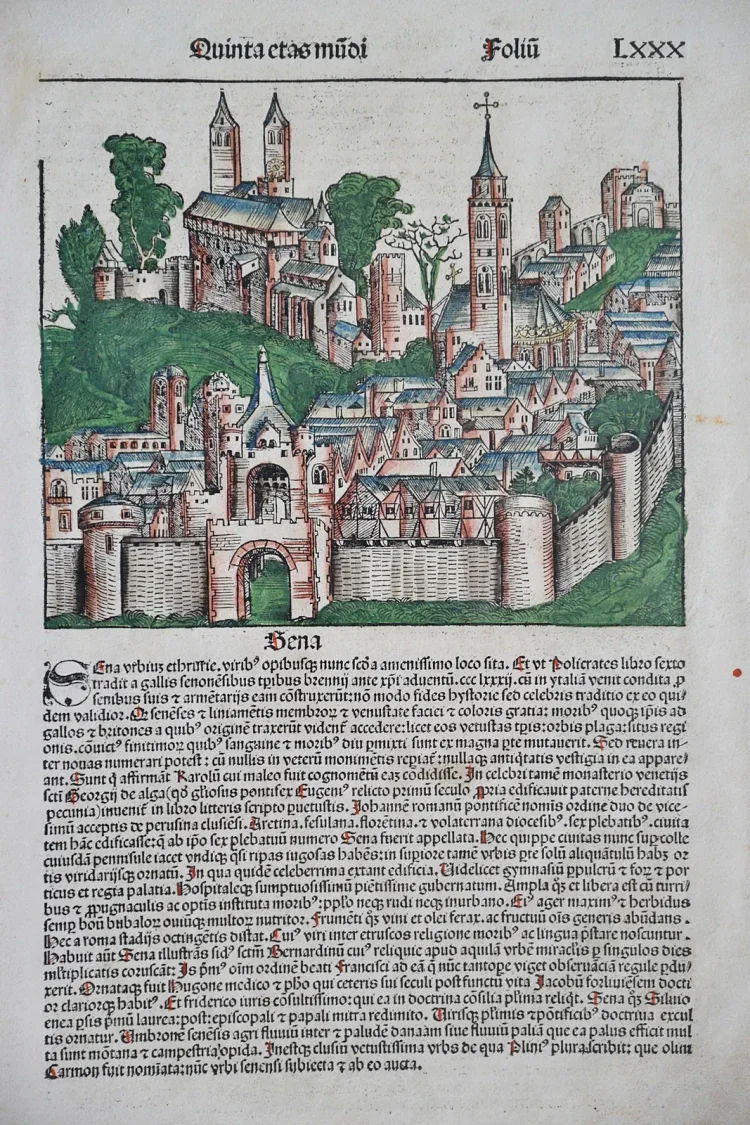 Quinta etas mūdi Foliū LXXX
Sena
SEna vrbiuʒ ethrurie. viribꝰ opibusqꝫ nunc scḋa amenissimo loco sita. Et vt Policrates libro sexto
tradit a gallis senonēsibus tpibus brennij ante xp̄i aduentū. ccc lxxxij. cū in ytaliā venit condita ꝓ
senibus suis ⁊ armētarijs eam cōstruxerūt: nō modo fides hystorie sed celebris traditio ex eo qui/
dem validior. Qꝫ senēses ⁊ liniamētis membroꝝ ⁊ venustate faciei ⁊ coloris gratia: moribꝰ quoqꝫ ip̄is ad
gallos ⁊ britones a quibꝰ originē traxerūt vident̄ accedere: licet eos vetustas tp̄is: orbis plaga: situs regi
onis. cōuictꝰ finitimoꝝ quibꝰ sanguine ⁊ moribꝰ diu pmixti sunt ex magna pte mutauerit. Sed reuera in/
ter nouas numerari potest: cū nullis in veterū monimētis repiat̄: nullaqꝫ antiq̇tatis vestigia in ea appare/
ant. Sunt q̇ affirmāt Karolū cui maleo fuit cognomētū eaʒ cōdidisse. In celebri tamē monasterio venetijs
scti Georgij de alga (qd̓ gl̓iosus pontifex Eugeniꝰ relicto primū seculo ꝓpria edificauit paterne hereditatis
pecunia) inuenit̄ in libro litteris scripto puetustis. Johannē romanū pontificē nomīs ordine duo de vice/
simū acceptis de perusina clusiēsi. Aretina. fesulana. florētina. ⁊ volaterrana diocesibꝰ. sex plebatibꝰ. ciuita
tem hāc edificasse: ⁊ ab ip̄o sex plebatuū numero Sena fuerit appellata. Hec quippe ciuitas nunc sup colle
cuiusdā pennisule iacet vndiqꝫ q̄si ripas iugosas habēs: in supiore tamē vrbis pte solū aliquātulū habꝫ or
tis viridarijsqꝫ ornatū. In qua quidē celeberrima extant edificia. Videlicet gymnasiū ppulcrū ⁊ foꝝ ⁊ por
ticus et regia palatia. Hospitaleqꝫ sumptuosissimū pientissime gubernatum. Ampla qꝫ et libera est cū turri/
bus ⁊ ꝓpugnaculis ac optīs instituta moribꝰ: pplo neqꝫ rudi neqꝫ inurbano. Eiꝰ ager maximꝰ ⁊ herbidus
semp boū bubaloꝝ ouiūqꝫ multoꝝ nutritor. Frumēti qꝫ vini et olei ferax. ac fructuū oīs generis abūdans.
Hec a roma stadijs octingētis distat. Cuiꝰ viri inter etruscos religione moribꝰ ac lingua p̄stare noscuntur.
Habuit aūt Sena illustrās sidꝰ sctm̄ Bernardinū cuiꝰ reliquie apud aquilā vrbē miraclis p singulos dies
ml̓tiplicatis coruscāt: Is pmꝰ oīm ordinē beati Francisci ad eā q̄ nūc tantope viget obseruāciā regule pdu/
xerit. Ornataqꝫ fuit Hugone medico ⁊ ph̄o qui ceteris sui seculi post functu vita Jacobū forliuiēsem docti
or clariorqꝫ habitꝰ. Et friderico iuris cōsultissimo: qui ea in doctrina cōsilia pl̓ima reliq̇t. Sena qꝫ Siluio
enea psis pmū laurea: post: episcopali ⁊ papali mitra redimito. Virisqꝫ pl̓imis ⁊ pōtificibꝰ doctrina excul
tis ornatur. Umbrone senēsis agri fluuiū inter ⁊ paludē danaam siue fluuiū paliā que ea palus efficit mul
ta sunt mōtana ⁊ campestria opida. Inestqꝫ clusiū vetustissima vrbs de qua Pliniꝰ plura scribit: que olim
Carmon fuit nomīata: nūc vrbi senensi subiecta ⁊ ab eo aucta.